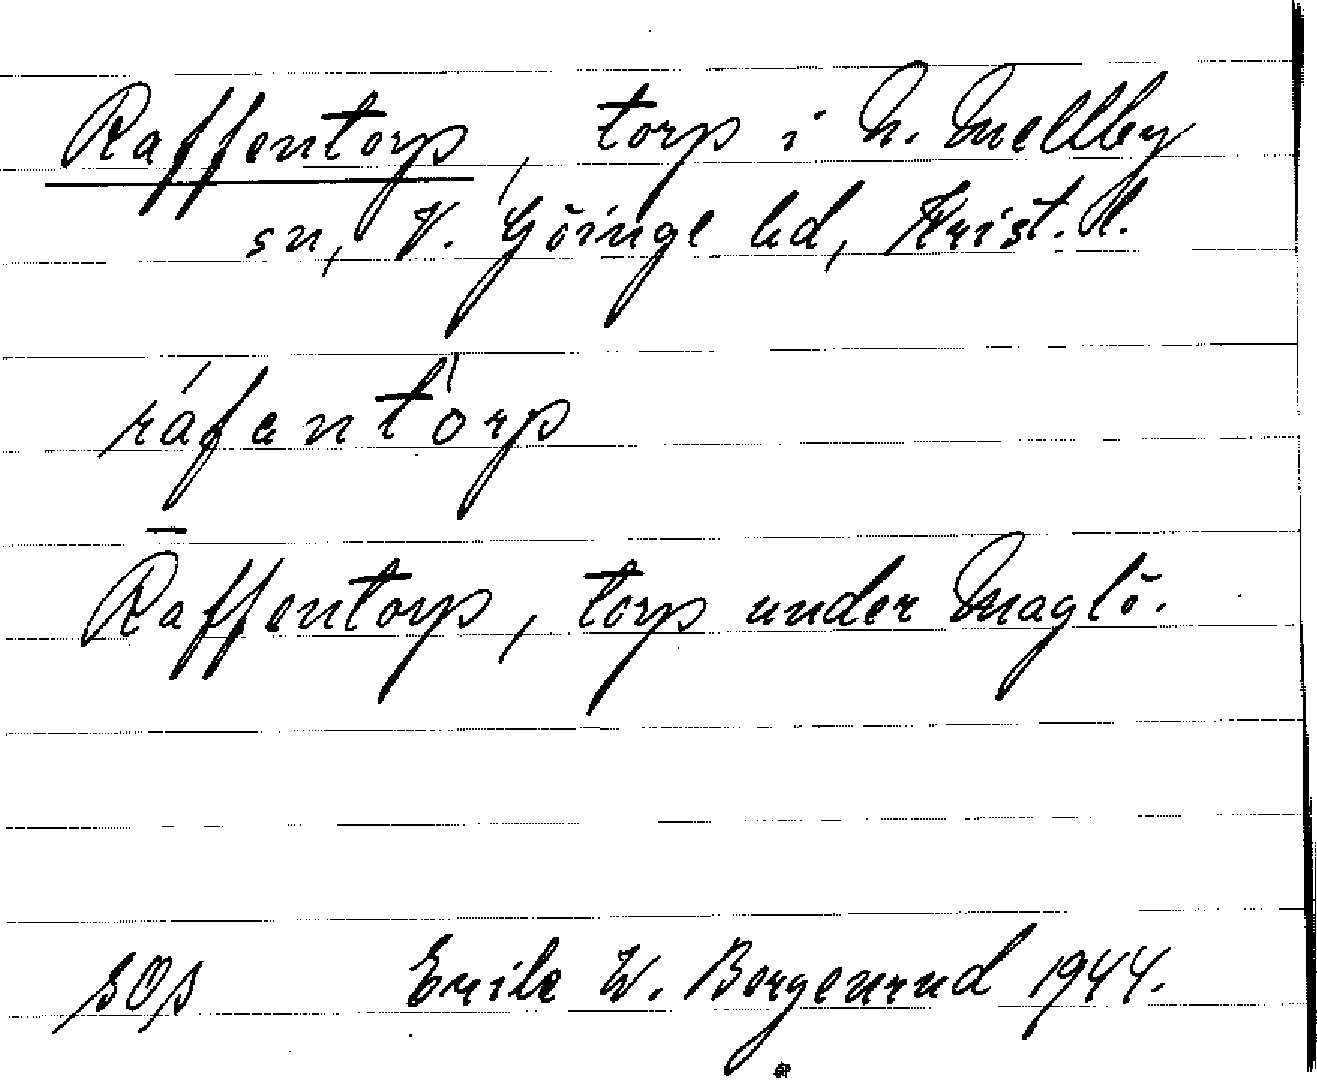 Raffentorp, torp i N. Mellby
sn, V. Göinge hd, Krist. l.
ráfentòrp
Raffentorp, torp under Maglö.
SOP Erik W. Bergenrud 1944.